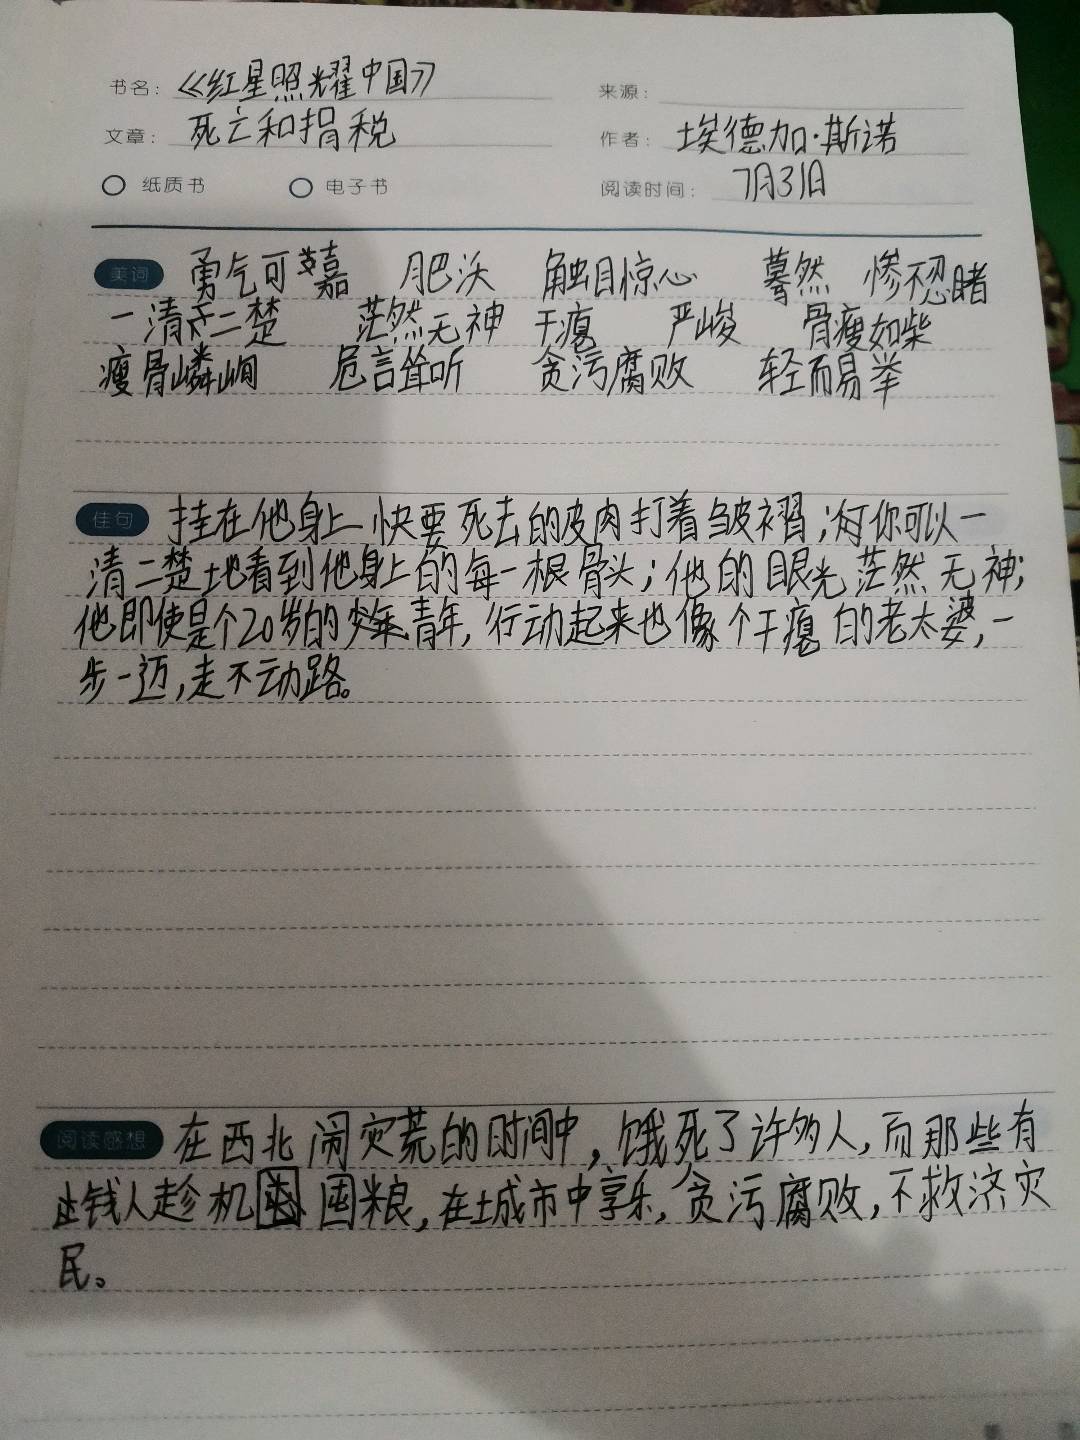 书名：《红星照耀中国》 来源：
文章：死亡和捐税 作者：埃德加·斯诺
纸质书 电子书 阅读时间：7月31日
美词 勇气可嘉 肥沃 触目惊心 蓦然 惨不忍睹
一清二楚 茫然无神 干瘪 严峻 骨瘦如柴
瘦骨嶙峋 危言耸听 贪污腐败 轻而易举
佳句 挂在他身上快要死去的皮肉打着皱褶；你可以一
清二楚地看到他身上的每一根骨头；他的眼光茫然无神；
他即使是个20岁的少年青年，行动起来也像个干瘪的老太婆，一
步一迈，走不动路。
阅读感想 在西北闹灾荒的时间中，饿死了许多人，而那些有
钱人趁机囤粮，在城市中享乐，贪污腐败，不救济灾
民。